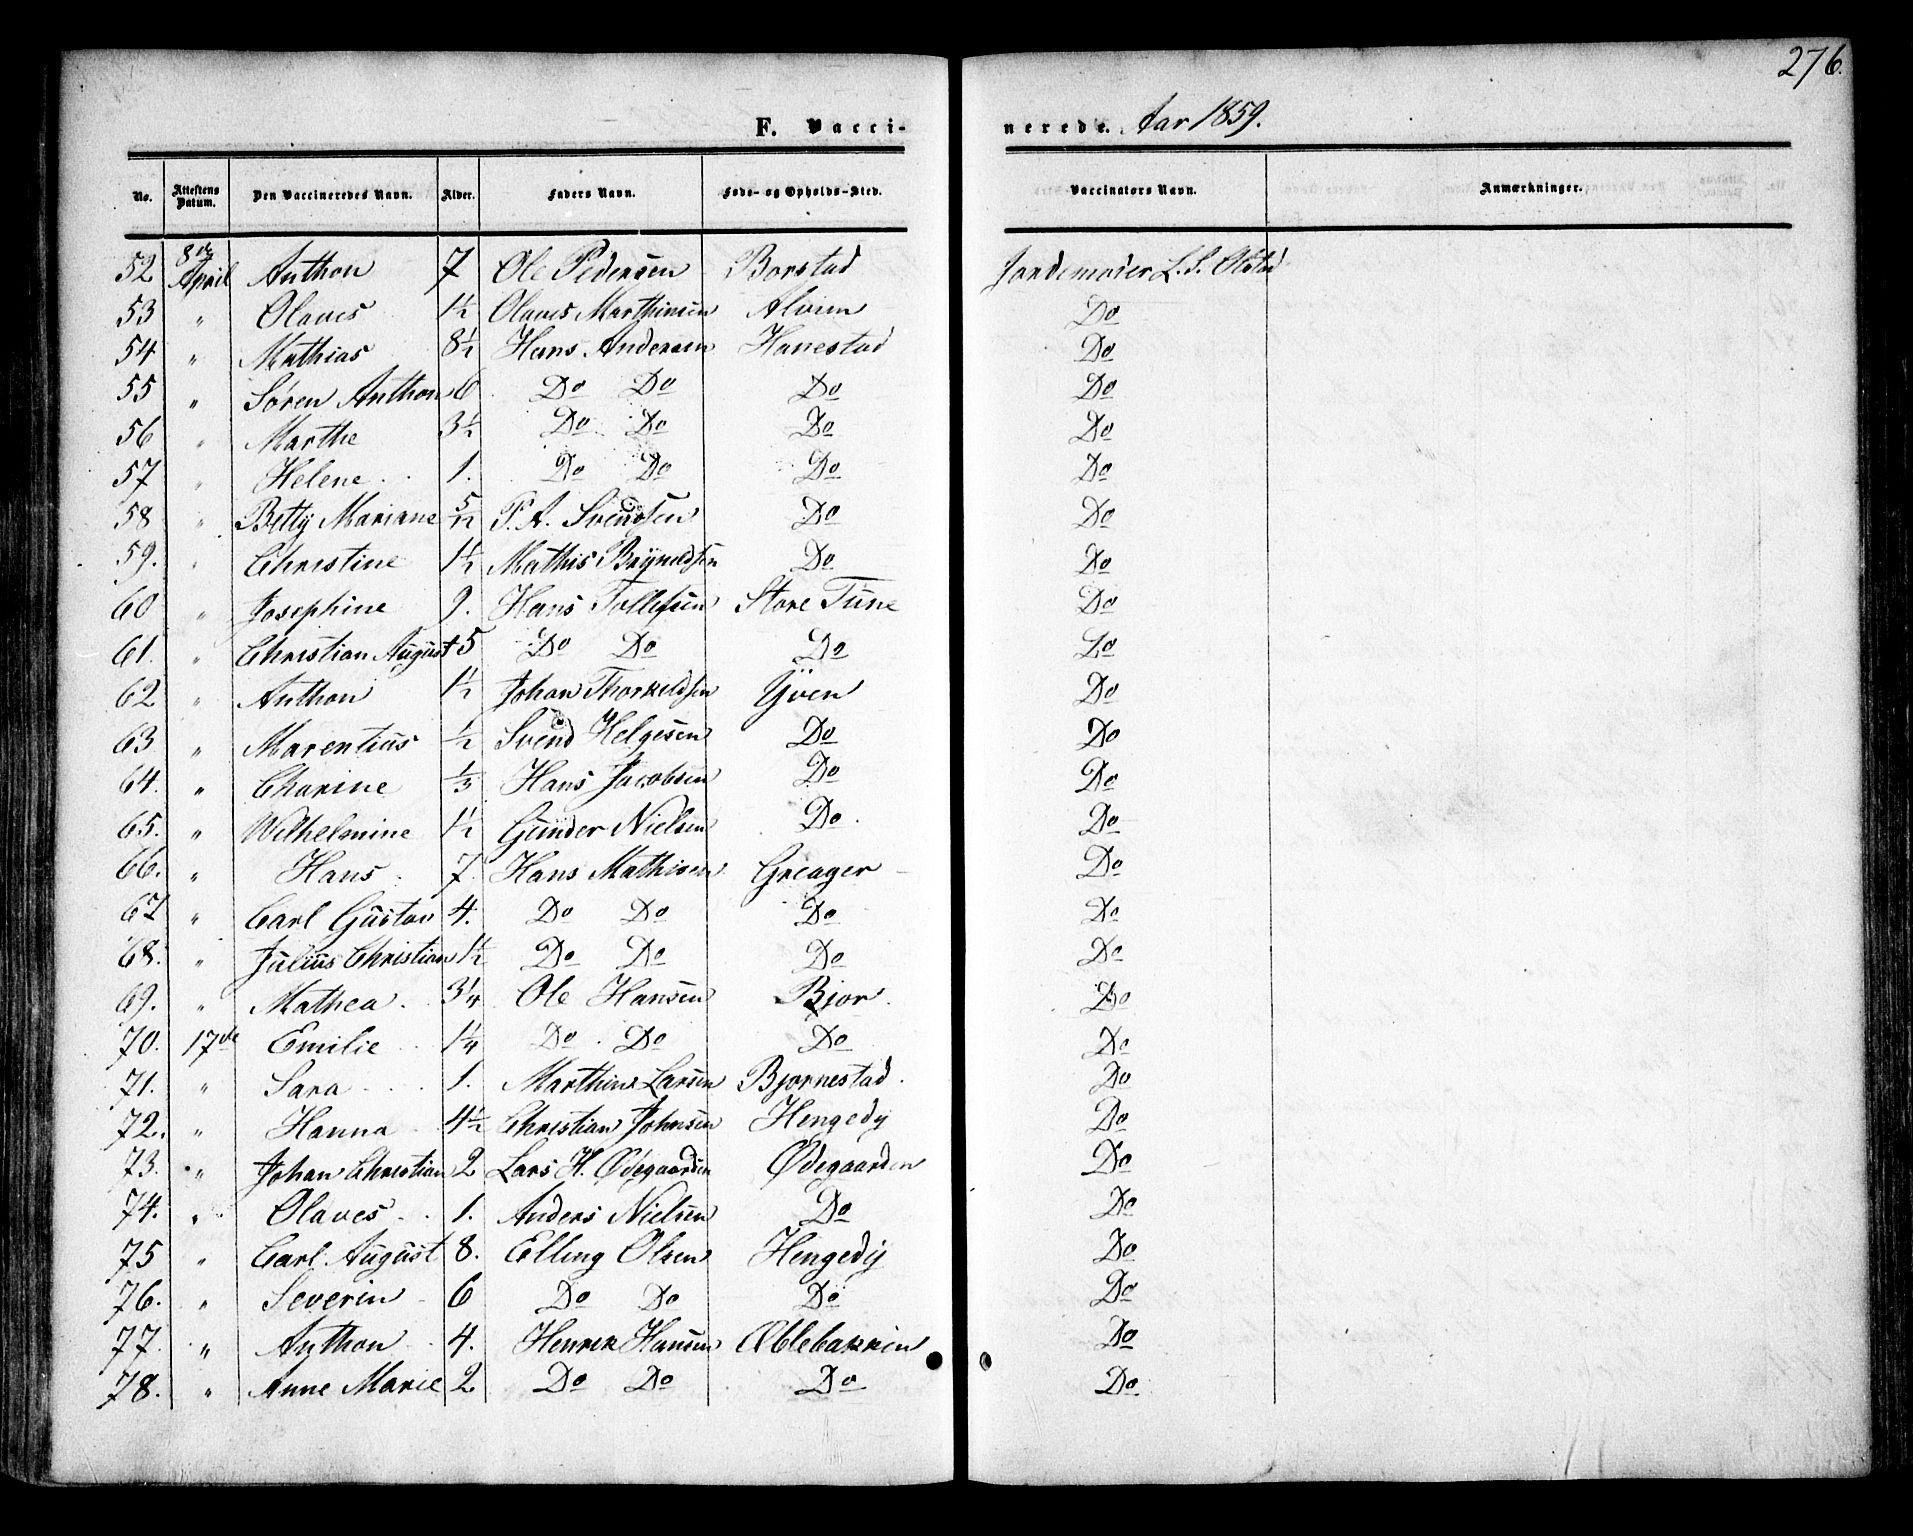 276.
F. Vacci- nerede. Aar 1859.
No. Attestens Datum. Den Vaccineredes Navn. Alder. Faders Navn. Føde- og Opholds-Sted. Vaccinators Navn. Anmærkninger.
52 8de April Anthon 7 Ole Pedersen Borstad Jordemoder L. S. Olstad
53 " Olaves 1½ Olaves Marthinsen Alvim Do
54 " Mathias 8½ Hans Andersen Hanestad Do
55 " Søren Anthon 6 Do Do Do Do
56 " Marthe 3½ Do Do Do Do
57 " Helene 1. Do Do Do Do
58 " Betty Mariane 5/12 P. A. Svendsen Do Do
59. " Christine 1½ Mathis Brynildsen Do Do
60 " Josephine 9. Hans Tollefsen Store Tune Do
61. " Christian August 5 Do Do Do Do
62 " Anthon 1½ Johan Thorkeldsen Yven Do
63 " Marentius ½ Svend Helgesen Do Do
64. " Charine ⅓ Hans Jacobsen Do Do
65. " Wilhelmine 1½ Gunder Nielsen Do. Do
66. " Hans 7. Hans Mathisen Greager Do
67 " Carl Gustav 4. Do Do Do Do
68. " Julius Christian 1½ Do Do Do Do
69. " Mathea 3¼ Ole Hansen Bjor. Do
70. 17de Emilie 1¼ Do Do Do Do
71. " Sara 1. Marthin Larsen Bjornestad. Do
72. " Hanna 4½ Christian Johnsen Hengedy Do
73. " Johan Christian 2 Lars H. Ødegaarden Ødegaarden Do
74. " Olaves 1. Anders Nielsen Do Do
75 " Carl August 8. Elling Olsen Hengedy Do
76. " Severin 6 Do Do Do Do
77. " Anthon 4. Henrik Hansen Æblebakken Do
78. " Anne Marie 2 Do Do Do Do